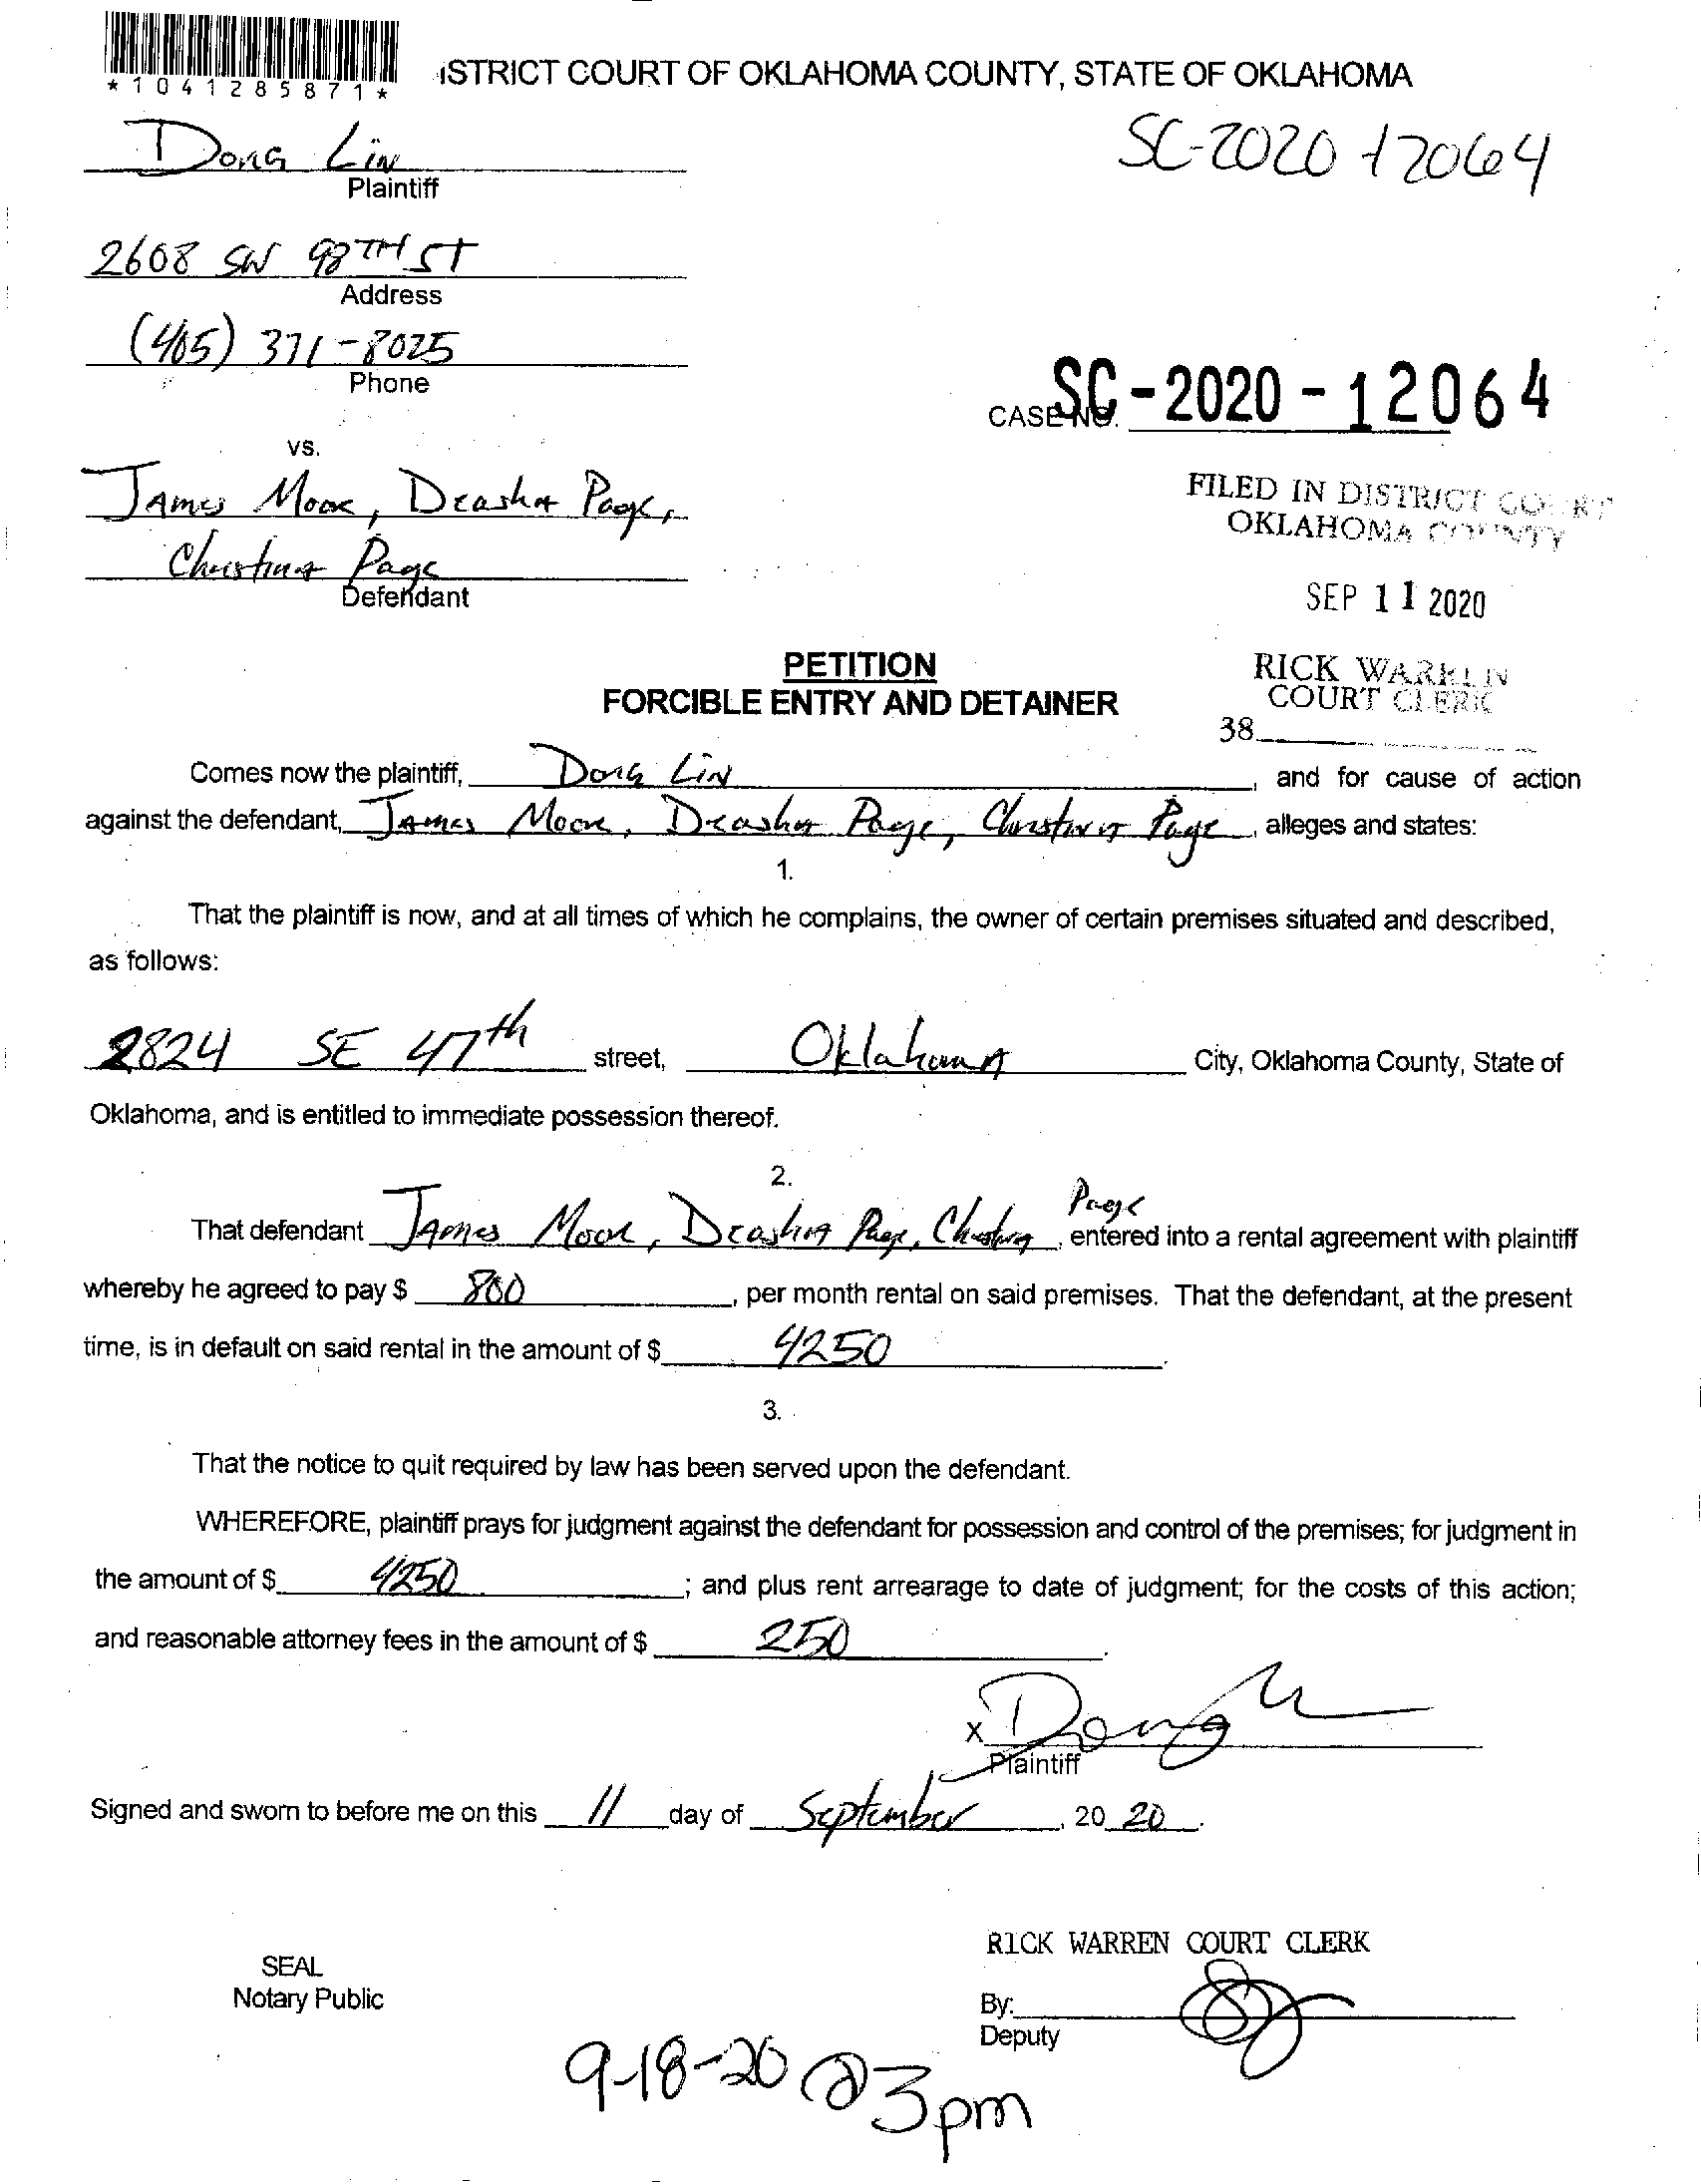 *1041285871*
ISTRICT COURT OF OKLAHOMA COUNTY, STATE OF OKLAHOMA
Dong Lin
Plaintiff
SC-2020-12064
2608 SW 98TH ST
Address
(405) 371-8025
Phone
CASE NO. SC-2020-12064
vs.
James Moore, Deasha Page,
Christina Page
Defendant
FILED IN DISTRICT COURT
OKLAHOMA COUNTY
SEP 11 2020
RICK WARREN
COURT CLERK
38
PETITION
FORCIBLE ENTRY AND DETAINER
Comes now the plaintiff, Dong Lin, and for cause of action
against the defendant, James Moore, Deasha Page, Christina Page, alleges and states:
1.
That the plaintiff is now, and at all times of which he complains, the owner of certain premises situated and described,
as follows:
2824 SE 47th street, Oklahoma City, Oklahoma County, State of
Oklahoma, and is entitled to immediate possession thereof.
2.
That defendant James Moore, Deasha Page, Christina Page, entered into a rental agreement with plaintiff
whereby he agreed to pay $ 800, per month rental on said premises. That the defendant, at the present
time, is in default on said rental in the amount of $ 4250.
3.
That the notice to quit required by law has been served upon the defendant.
WHEREFORE, plaintiff prays for judgment against the defendant for possession and control of the premises; for judgment in
the amount of $ 4250; and plus rent arrearage to date of judgment; for the costs of this action;
and reasonable attorney fees in the amount of $ 250.
X Dong
Plaintiff
Signed and sworn to before me on this 11 day of September, 20 20.
RICK WARREN COURT CLERK
SEAL
Notary Public
By:
Deputy
9-18-20 @ 3pm